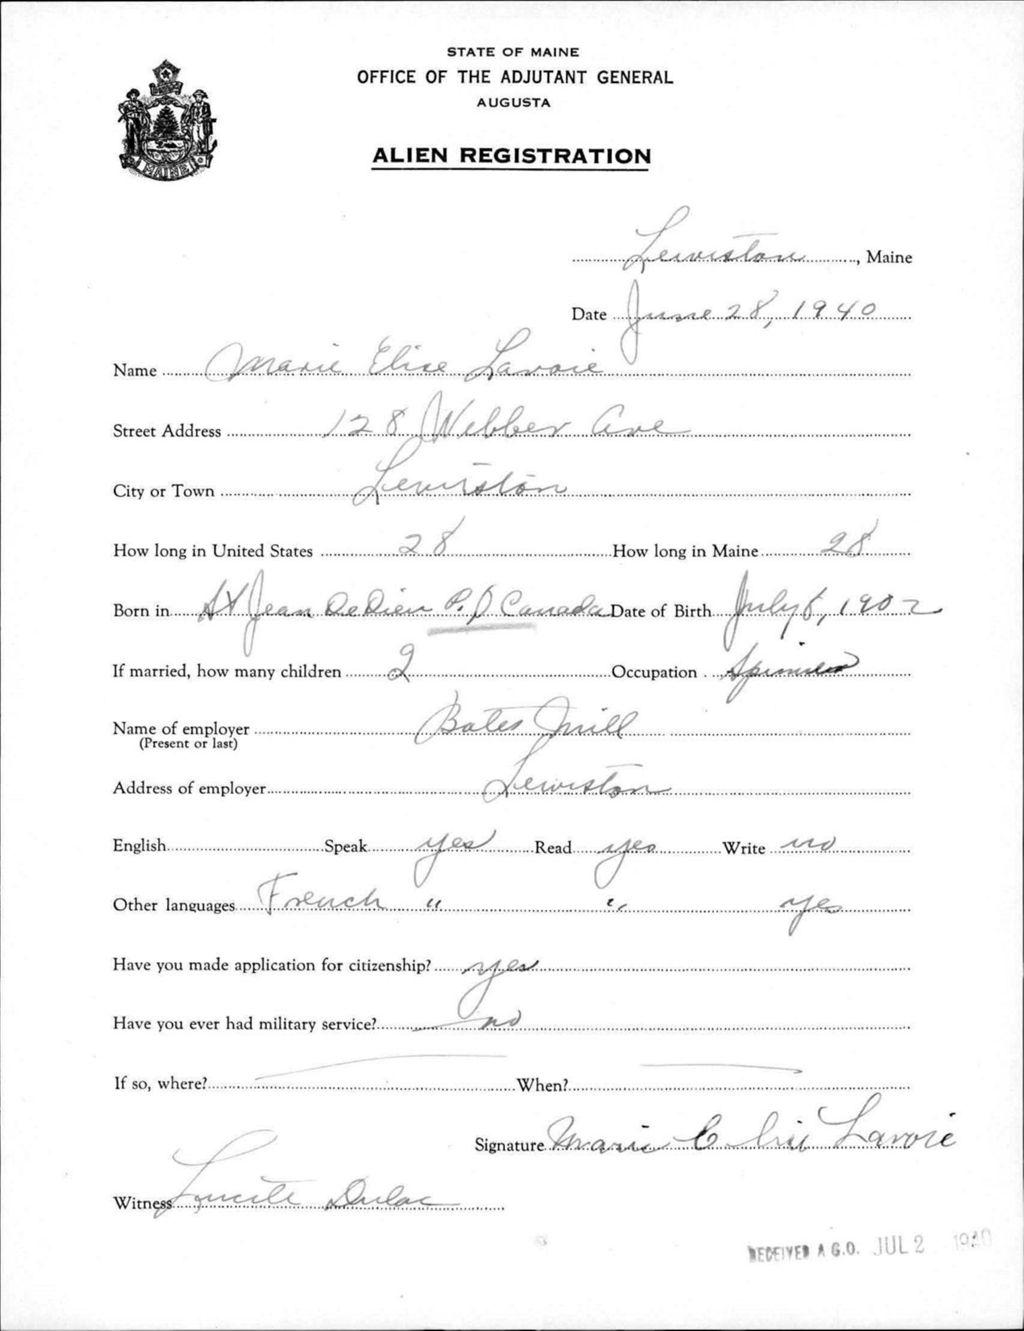 STATE OF MAINE
OFFICE OF THE ADJUTANT GENERAL
AUGUSTA
ALIEN REGISTRATION
MAINE
Lewiston, Maine
Date June 28, 1940
Name Marie Elise Lavoie
Street Address 128 Webber Ave
City or Town Lewiston
How long in United States 28 How long in Maine 28
Born in St Jean De Dieu P.Q Canada Date of Birth July 8, 1902
If married, how many children 2 Occupation Spinner
Name of employer Bates Mill
(Present or last)
Address of employer Lewiston
English Speak yes Read yes Write no
Other languages French " " yes
Have you made application for citizenship? yes
Have you ever had military service? no
If so, where? When?
Signature Marie Lavoie
Witness Lucile Dulac
RECEIVED A.G.O. JUL 2 1940